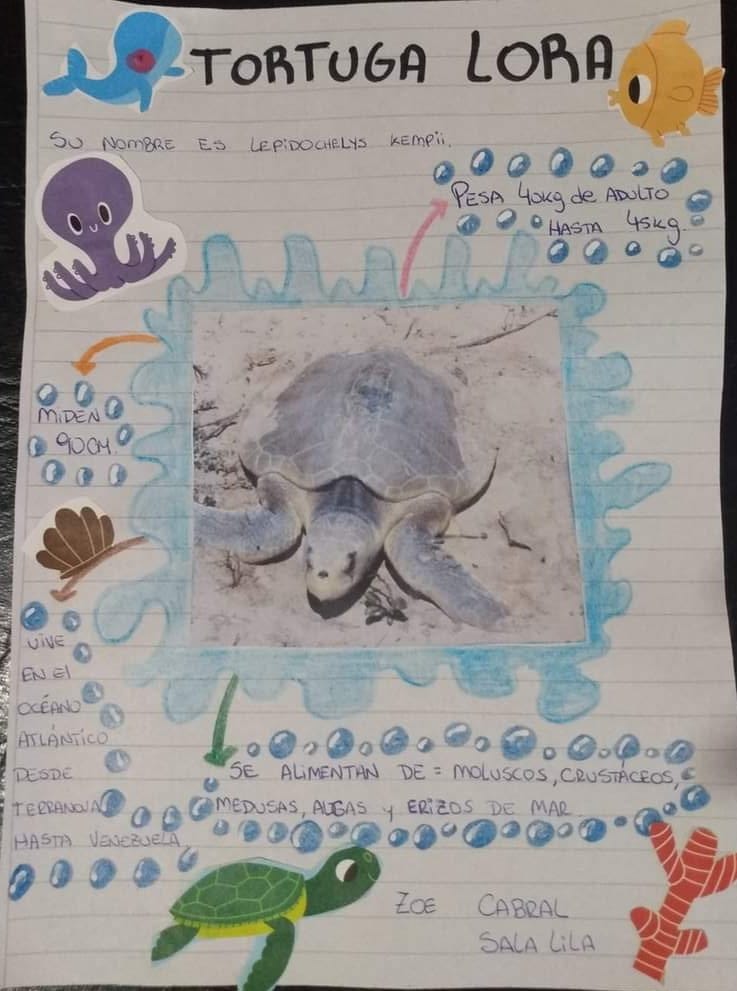 TORTUGA LORA
SU NOMBRE ES LEPIDOCHELYS KEMPII.
PESA 40kg de ADULTO
HASTA 45kg.
MIDEN
90CM.
VIVE
EN El
OCÉANO
ATLÁNTICO
DESDE
TERRANOVA
HASTA VENEZUELA
SE ALIMENTAN DE = MOLUSCOS, CRUSTÁCEOS,
MEDUSAS, ALGAS y ERIZOS DE MAR.
ZOE CABRAL
SALA LILA